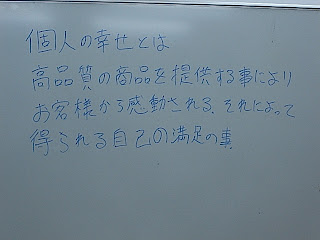 個人の幸せとは
高品質の商品を提供する事により
お客様から感動される、それによって
得られる自己の満足の事